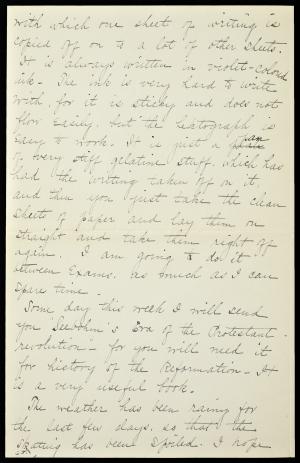 with which one sheet of writing is
copied off on to a lot of other sheets.
It is always written in violet-colored
ink - The ink is very hard to write
with, for it is sticky and does not
flow easily. but the hectograph is
easy to work. It is just a pan
of very stiff gelatine stuff, which has
had the writing taken off on it,
and then you just take the clean
sheets of paper and lay them on
straight and take them right off
again. I am going to do it
between Exams. as much as I can
spare time.
Some day this week I will send
you Seebohm's Era of the Protestant
revolution - for you will need it
for history of the Reformation - It
is a very useful book.
The weather has been rainy for
the last few days. so that the
skating has been spoiled. I hope